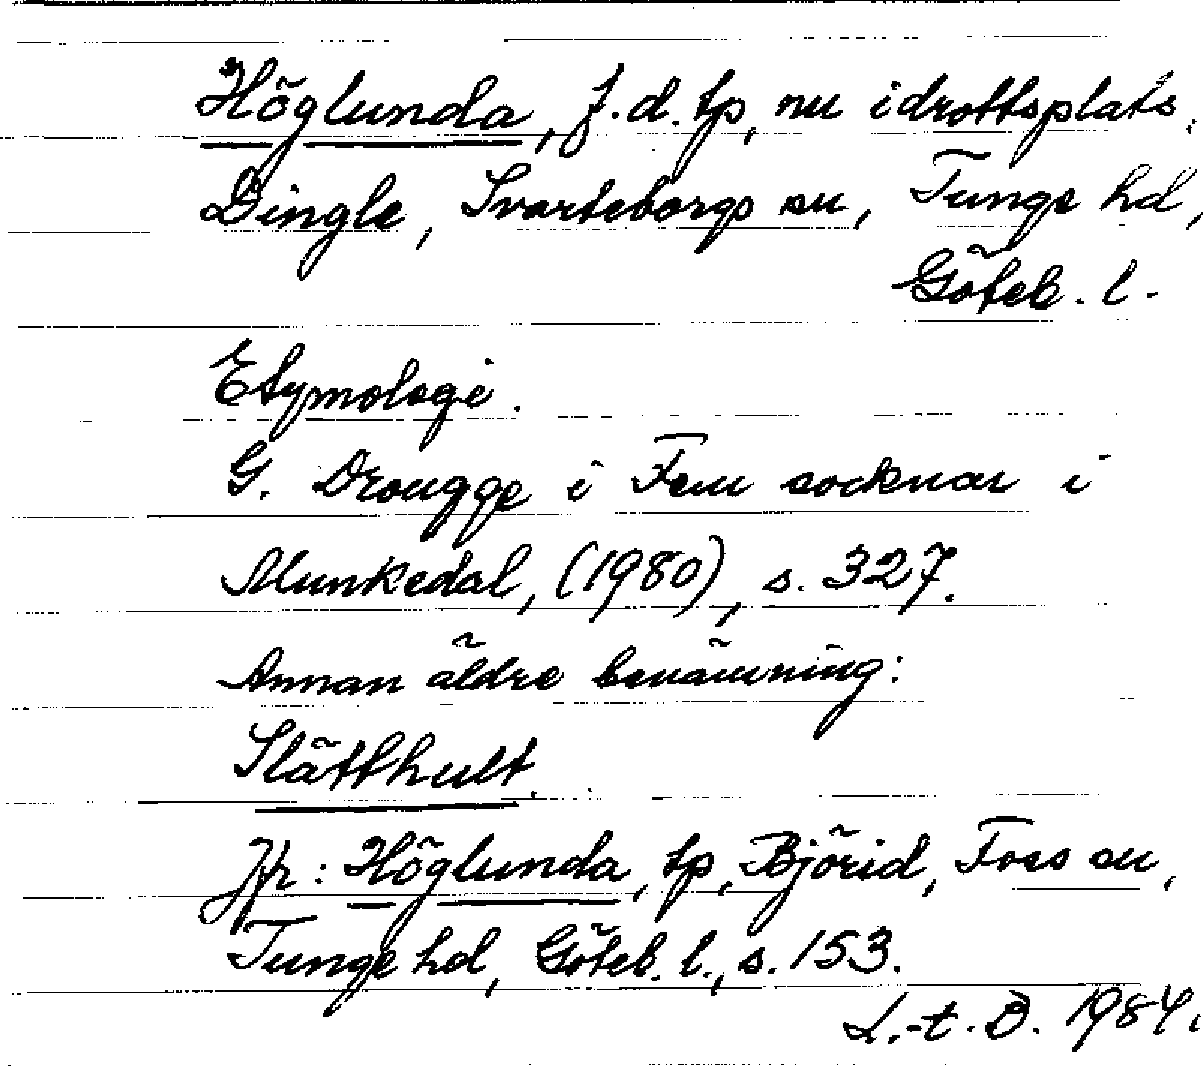 Höglunda, f.d. tp, nu idrottsplats.
Dingle, Svarteborgs sn, Tunge hd,
Göteb. l.
Etymologi.
G. Drougge i Fem socknar i
Munkedal, (1980), s. 327.
Annan äldre benämning:
Slätthult.
Jfr: Höglunda, tp, Björid, Foss sn,
Tunge hd, Göteb. l., s. 153.
L.-t. B. 1984.